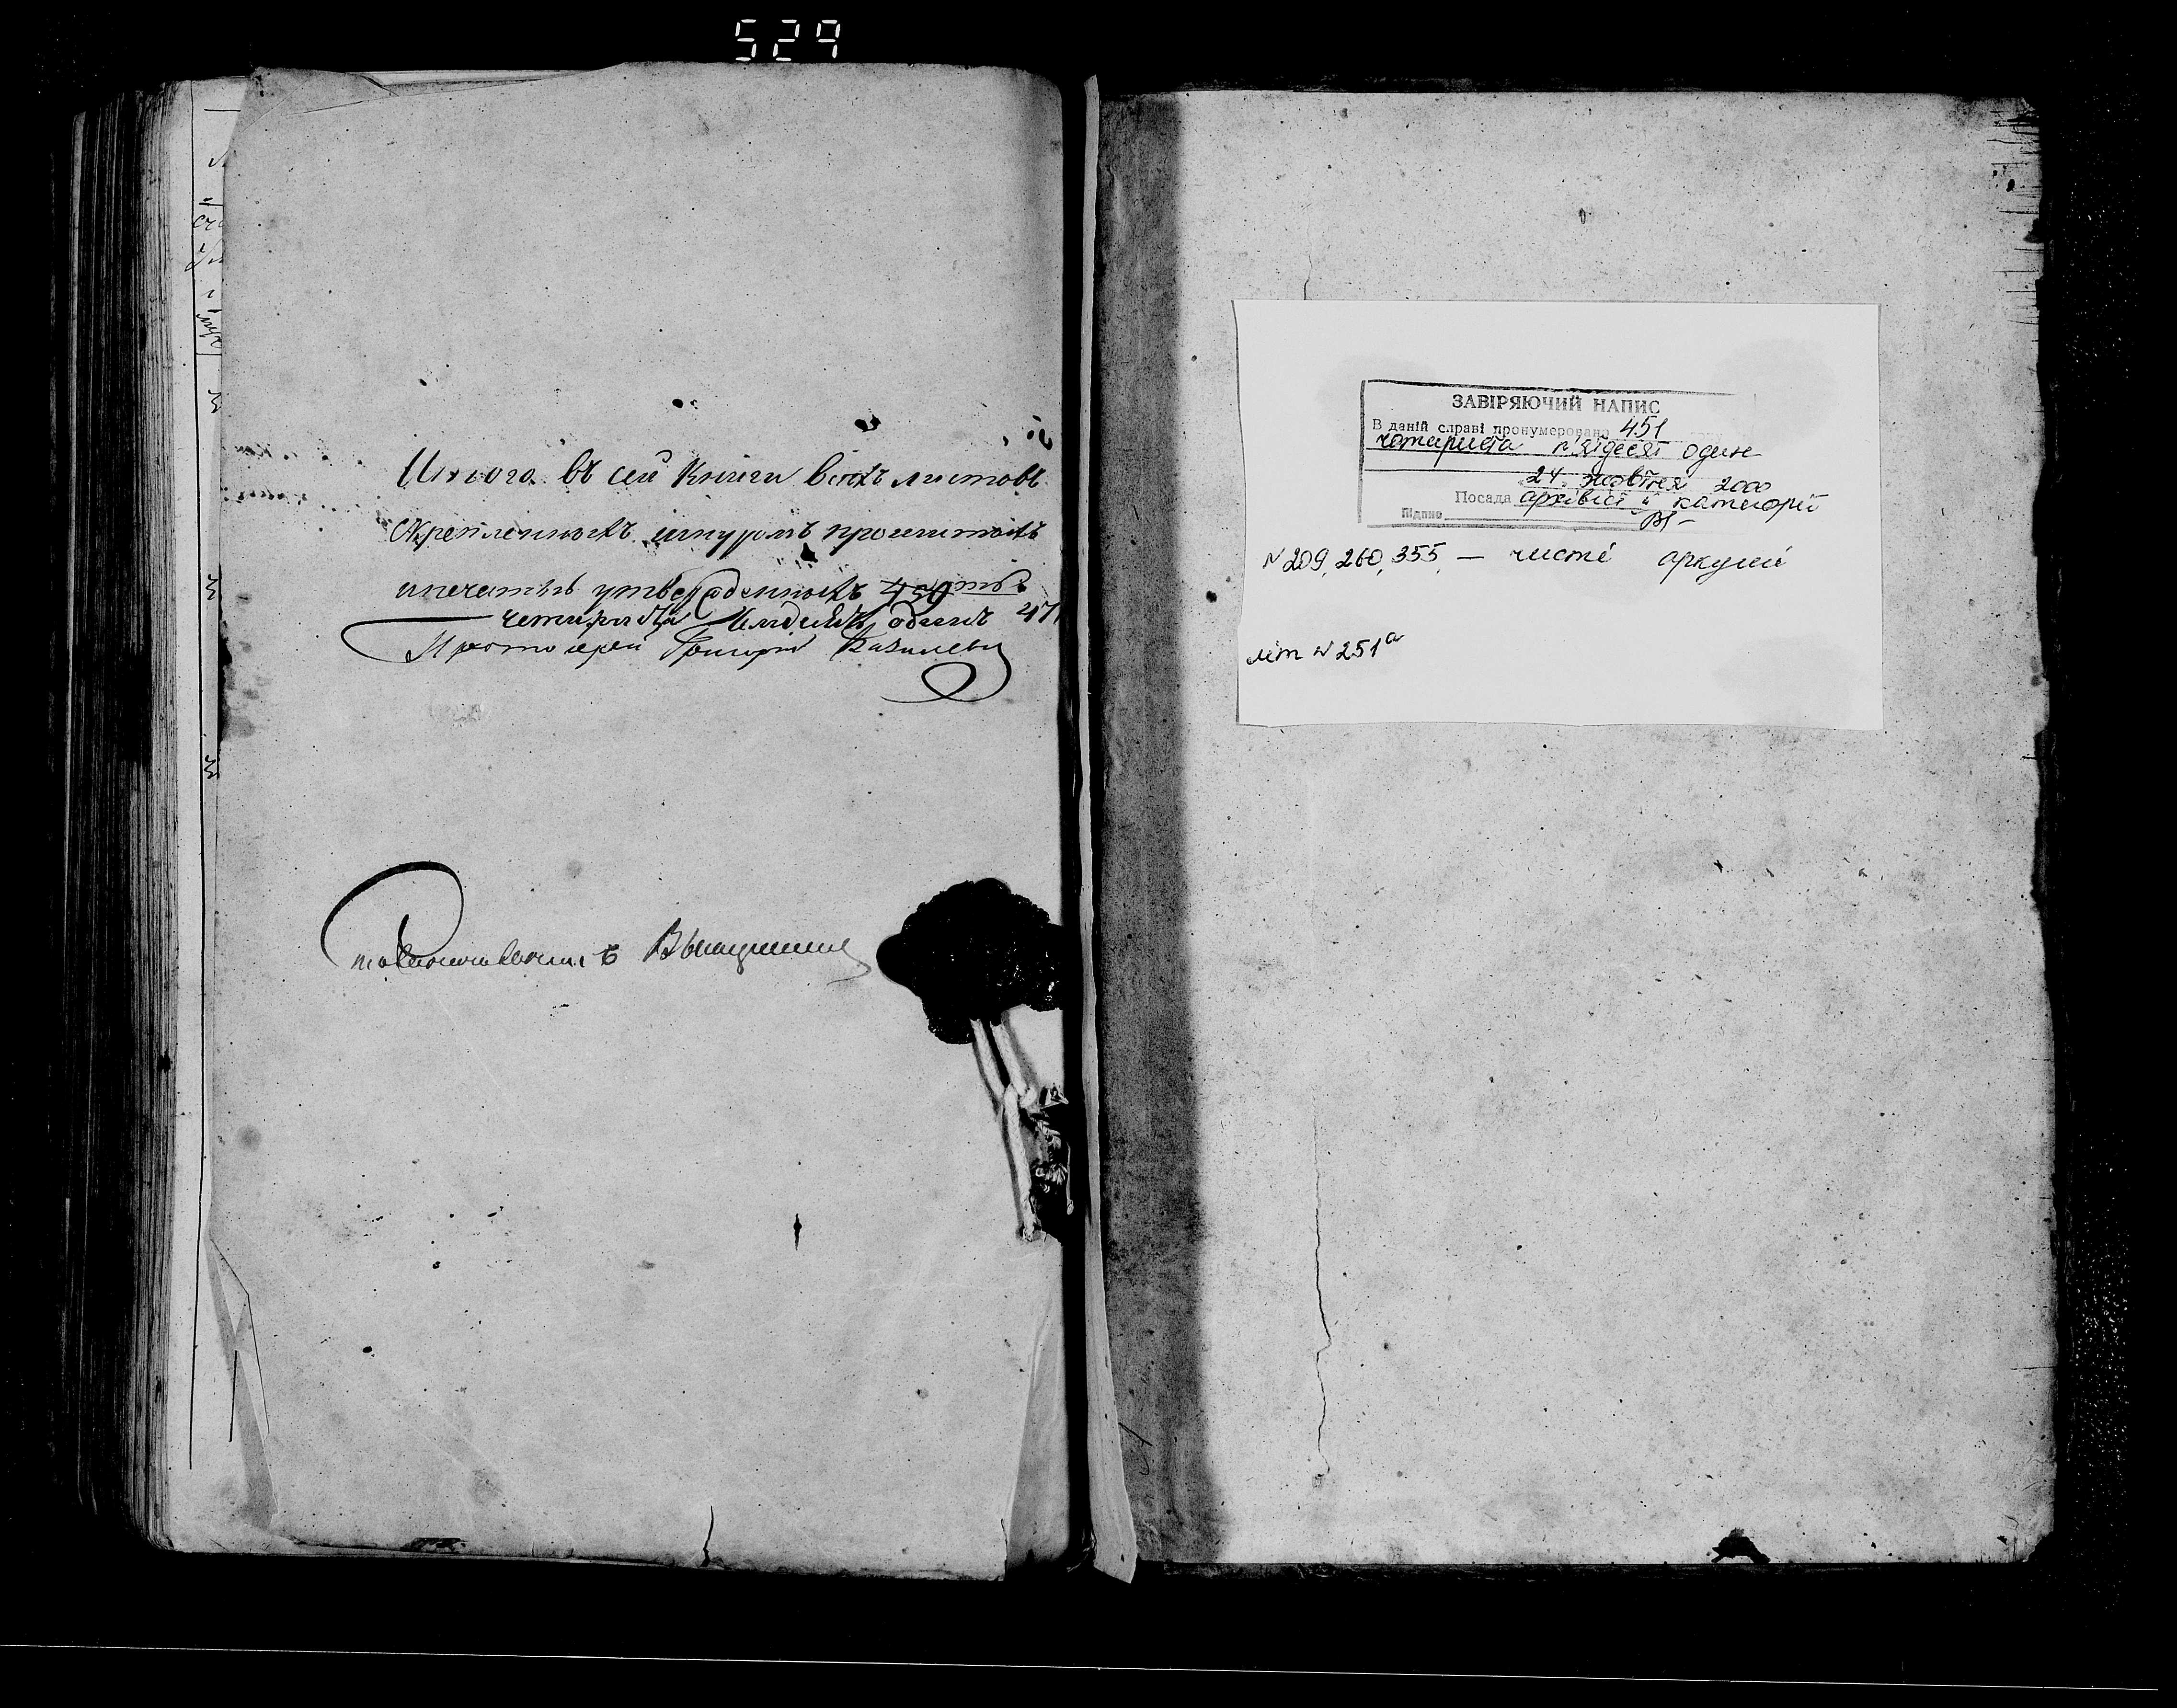 529
Итого въ сей книги всѣхъ листовъ
скрепленныхъ шнуромъ прошитыхъ
и печатью утвержденныхъ 450
четыреста семдесятъ одинъ 471
Протоіерей Григорій
ЗАВІРЯЮЧИЙ НАПИС
В даній справі пронумеровано 451
чотириста п'ятдесят один
24 жовтня 2000
Посада архівіст II категорії
Підпис
№ 209, 260, 355 — чисті аркуші
літ № 251а